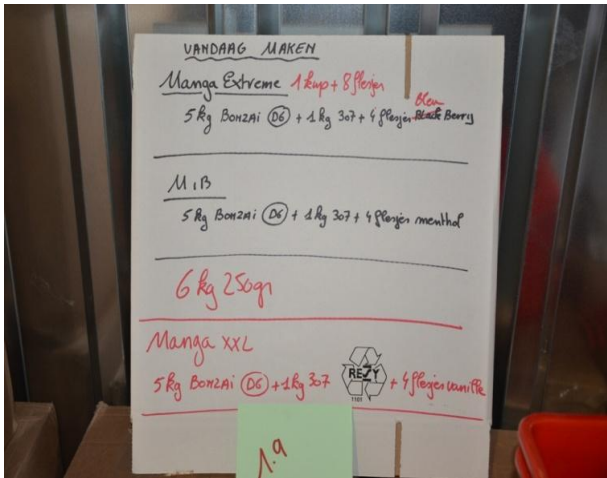 VANDAAG MAKEN
Manga Extreme 1 kap + 8 flesjes
Bleu
5kg BONZAi D6 + 1kg 307 + 4 flesjes Black Berry
M,B
5kg BONZAi D6 + 1kg 307 + 4 flesjes menthol
6 kg 250gr
Manga XXL
5kg BONZAi D6 + 1kg 307 + 4 flesjes vanille
RESY
1101
1.9